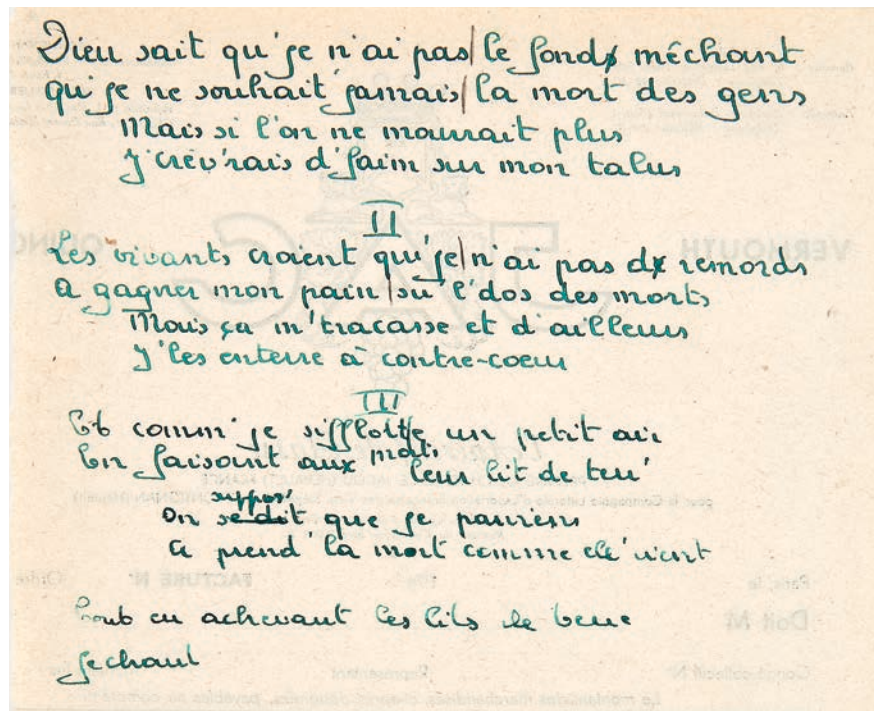 Dieu sait qu'je n'ai pas/le fond méchant
qu'je ne souhait' jamais/la mort des gens
Mais si l'on ne mourait plus
J'crèv'rais d'faim sur mon talus
II
Les vivants croient qu'je/n'ai pas d' remords
A gagner mon pain/su' l'dos des morts
Mais ça m'tracasse et d'ailleurs
J'les enterre à contre-coeur
III
Et comm' je sifflotte un petit air
En faisant aux morts leur lit de terr'
suppos'
On se dit que je parviens
A prend' la mort comme ell' vient
Tout en achevant les lits de terre
je chant